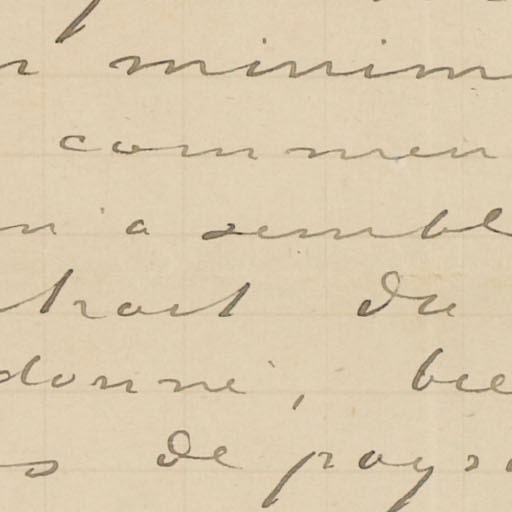 n minim
commen
n a sembl
trait du
donné, bee
s de pays